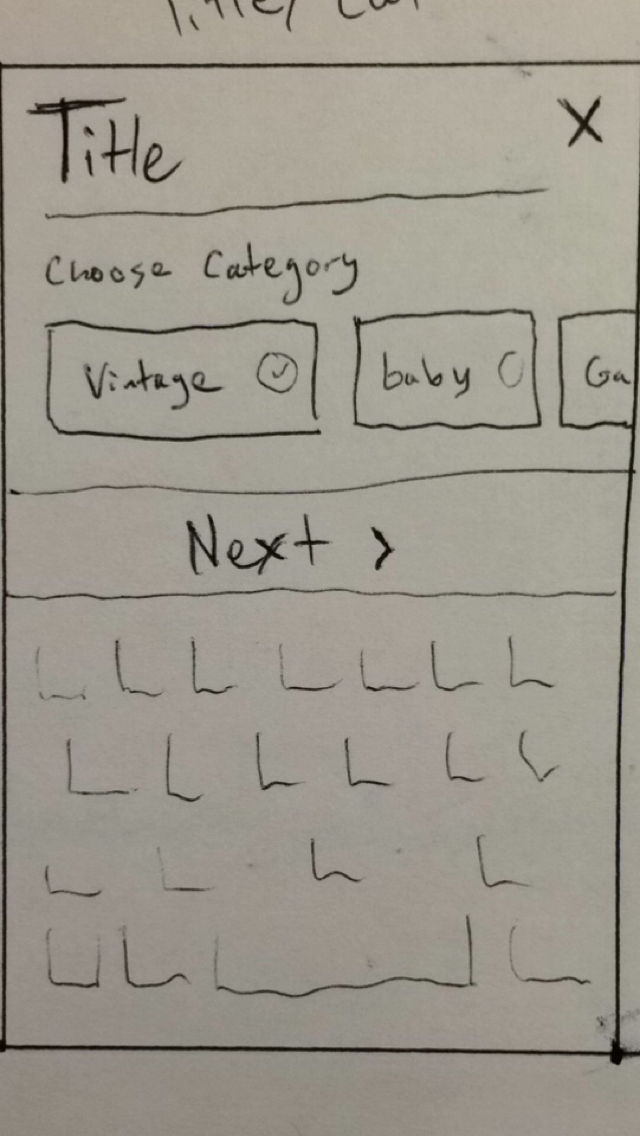 Title X
Choose Category
Vintage baby Ga
Next >